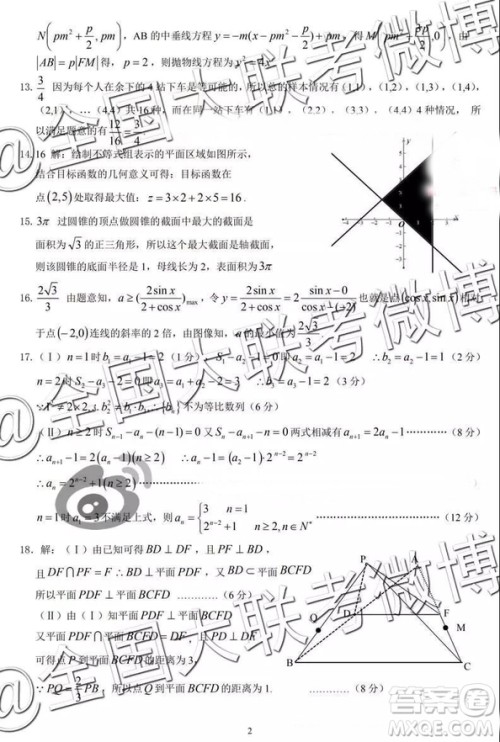 N(pm²+p/2, pm), AB 的中垂线方程 y=-m(x-pm²-p/2)+pm, 得 M(pm²+ p/2,0), 由
|AB|=p|FM| 得, p=2, 则抛物线方程为 y²=4x
13. 3/4 因为每个人在余下的 4 站下车是等可能的, 所以总的样本情况有 (1,1), (1,2), (1,3), (1,4),
(2,1), …(4,4) 共 16 种, 而在同一站下车有 (1,1), (2,2), (3,3), (4,4) 4 种情况, 所
以满足题意的有 12/16=3/4
14. 16 解: 绘制不等式组表示的平面区域如图所示,
结合目标函数的几何意义可得: 目标函数在
点 (2,5) 处取得最大值: z=3×2+2×5=16.
15. 3π 过圆锥的顶点做圆锥的截面中最大的截面是
面积为 √3 的正三角形, 所以这个最大截面是轴截面,
则该圆锥的底面半径是 1, 母线长为 2, 表面积为 3π
16. 2√3/3 由题意知, a≥(2sin x/2+cos x)max, 令 y=2sin x/2+cos x=2 sin x-0/cos x-(-2) 也就是点 (cos x,sin x)
于点 (-2,0) 连线的斜率的 2 倍, 由图像知, a 的最小值为 2√3/3
17. (Ⅰ) n=1 时 b₁=a₁-1=2 (1 分), S₁-a₂-1=0 即 a₂=a₁-1=2 ∴b₂=a₂-1=1 (2 分)
n=2 时 S₂-a₃-2=0 即 a₃=a₁+a₂-2=3 ∴b₃=a₃-1=2 (3 分)
∵1²≠2×2, ∴b₂²≠b₁·b₃ ∴{bₙ} 不为等比数列 (6 分)
(Ⅱ) n≥2 时 Sₙ₋₁-aₙ-(n-1)=0 又 Sₙ-aₙ₊₁-n=0 两式相减有 aₙ₊₁=2aₙ-1 ………… (8 分)
∴aₙ₊₁-1=2(aₙ-1)(n≥2) ∴aₙ-1=(a₂-1)·2ⁿ⁻²=2ⁿ⁻²
∴aₙ=2ⁿ⁻²+1(n≥2)
∵n=1 时 a₁=3 不满足上式, 则 aₙ={3 n=1
2ⁿ⁻²+1 n≥2,n∈N* (12 分)
18. 解: (Ⅰ) 由已知可得 BD⊥DF, 且 PF⊥BD,
且 DF∩PF=F ∴BD⊥平面 PDF, 又 BD⊂平面 BCFD
所以平面 PDF⊥平面 BCFD …………(6 分)
(Ⅱ) 由 (Ⅰ) 知平面 PDF⊥平面 BCFD
又平面 PDF∩平面 BCFD=DF
可得点 P 到平面 BCFD 的距离为 3,
∵PQ=2/3PB, 所以点 Q 到平面 BCFD 的距离为 1. ………… (8 分)
P
A
Q
D
F
M
B
C
2
@全国大联考微博
@全国大联考微博
@全国大联考微博
答案圈
MXQE.COM